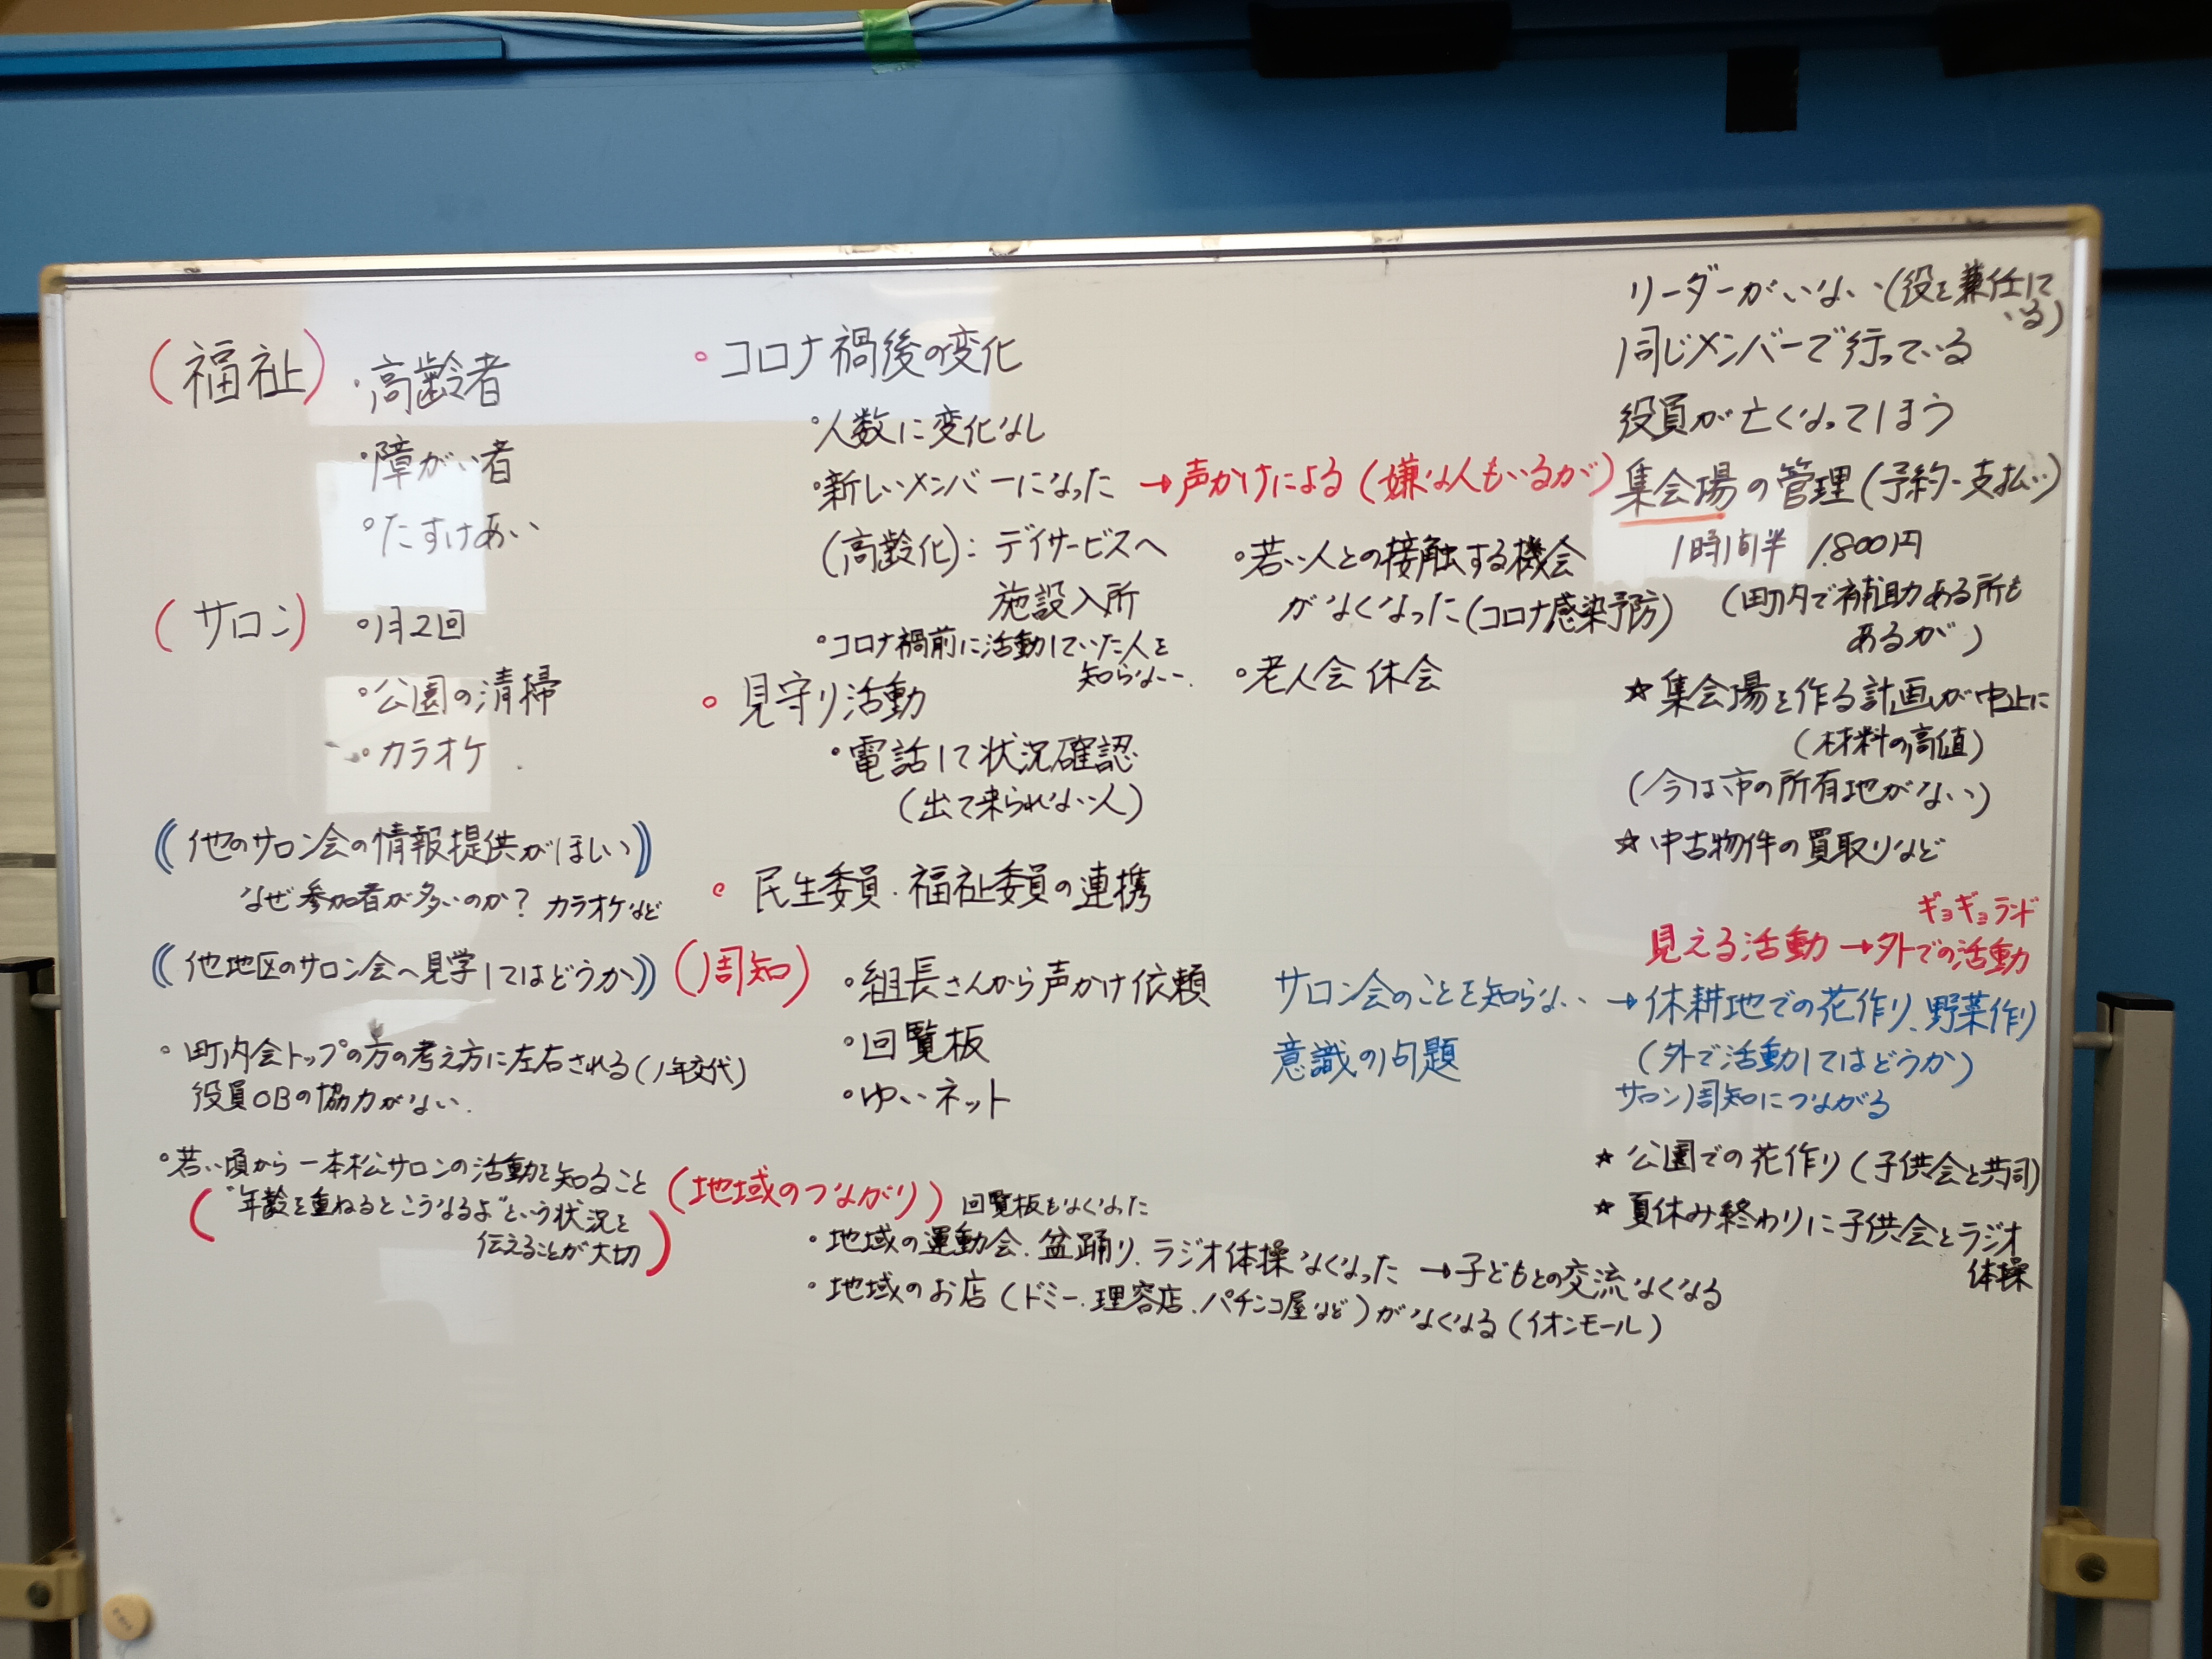 (福祉)
・高齢者
・障がい者
・たすけあい
(サロン)
・月2回
・公園の清掃
・カラオケ
((他のサロン会の情報提供がほしい))
なぜ参加者が多いのか? カラオケなど
((他地区のサロン会へ見学してはどうか))
・町内会トップの方の考え方に左右される(1年交代)
役員OBの協力がない.
・若い頃から一本松サロンの活動を知ること
("年齢を重ねるとこうなるよ"という状況を
伝えることが大切)
○コロナ禍後の変化
・人数に変化なし
・新しいメンバーになった →声かけによる(嫌な人もいるが)
(高齢化):デイサービスへ
施設入所
・コロナ禍前に活動していた人を
知らない.
・若い人との接触する機会
がなくなった(コロナ感染予防)
・老人会 休会
○見守り活動
・電話して状況確認
(出て来られない人)
○民生委員・福祉委員の連携
(周知)
・組長さんから声かけ依頼
・回覧板
・ゆいネット
サロン会のことを知らない
意識の問題
(地域のつながり) 回覧板もなくなった
・地域の運動会、盆踊り、ラジオ体操なくなった →子どもとの交流なくなる
・地域のお店(ドミー、理容店、パチンコ屋など)がなくなる(イオンモール)
リーダーがいない(役を兼任して
いる)
同じメンバーで行っている
役員が亡くなってしまう
集会場の管理(予約・支払い)
1時間半 1,800円
(町内で補助ある所も
あるが)
☆集会場を作る計画が中止に
(材料の高値)
(今は市の所有地がない)
☆中古物件の買取りなど
ギョギョランド
見える活動→外での活動
→休耕地での花作り、野菜作り
(外で活動してはどうか)
サロン周知につながる
☆公園での花作り(子供会と共同)
☆夏休み終わりに子供会とラジオ
体操